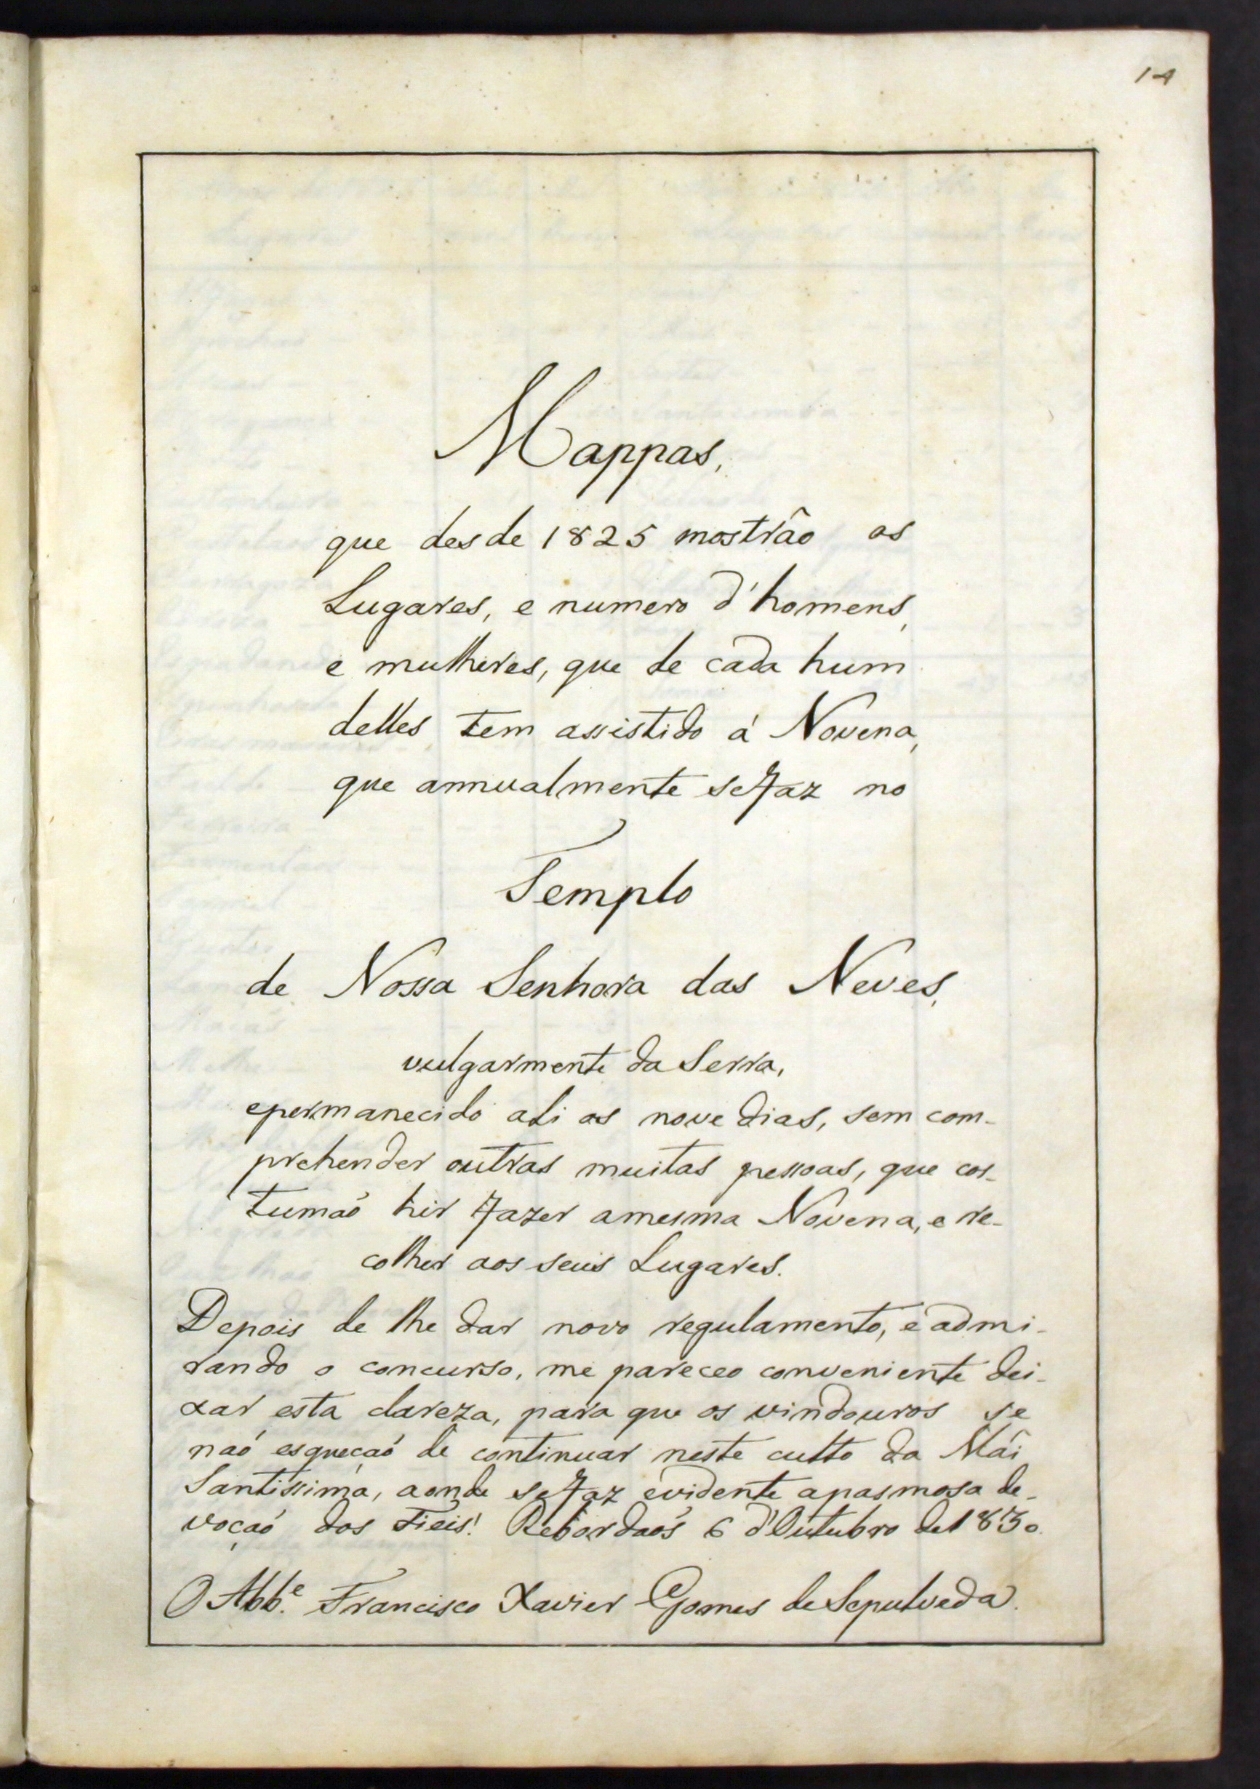 14
Mappas,
que desde 1825 mostrâo os
Lugares, e numero d'homens,
e mulheres, que de cada hum
delles tem assistido á Novena,
que annualmente se faz no
Templo
de Nossa Senhora das Neves,
vulgarmente da Serra,
epermanecido ali os nove dias, sem com-
prehender outras muitas pessoas, que cos-
tumaõ hir fazer amesma Novena, e re-
colher aos seus Lugares.
Depois de lhe dar novo regulamento, e admi-
rando o concurso, me pareceo conveniente dei-
xar esta clareza, para que os vindouros se
naó esqueçaó de continuar neste culto da Mâi
Santissima, aonde se faz evidente apasmosa de-
voçaó dos Fieis! Rebordaós 6 d'Outubro de 1830.
O Abb.e Francisco Xavier Gomes de Sepulveda.